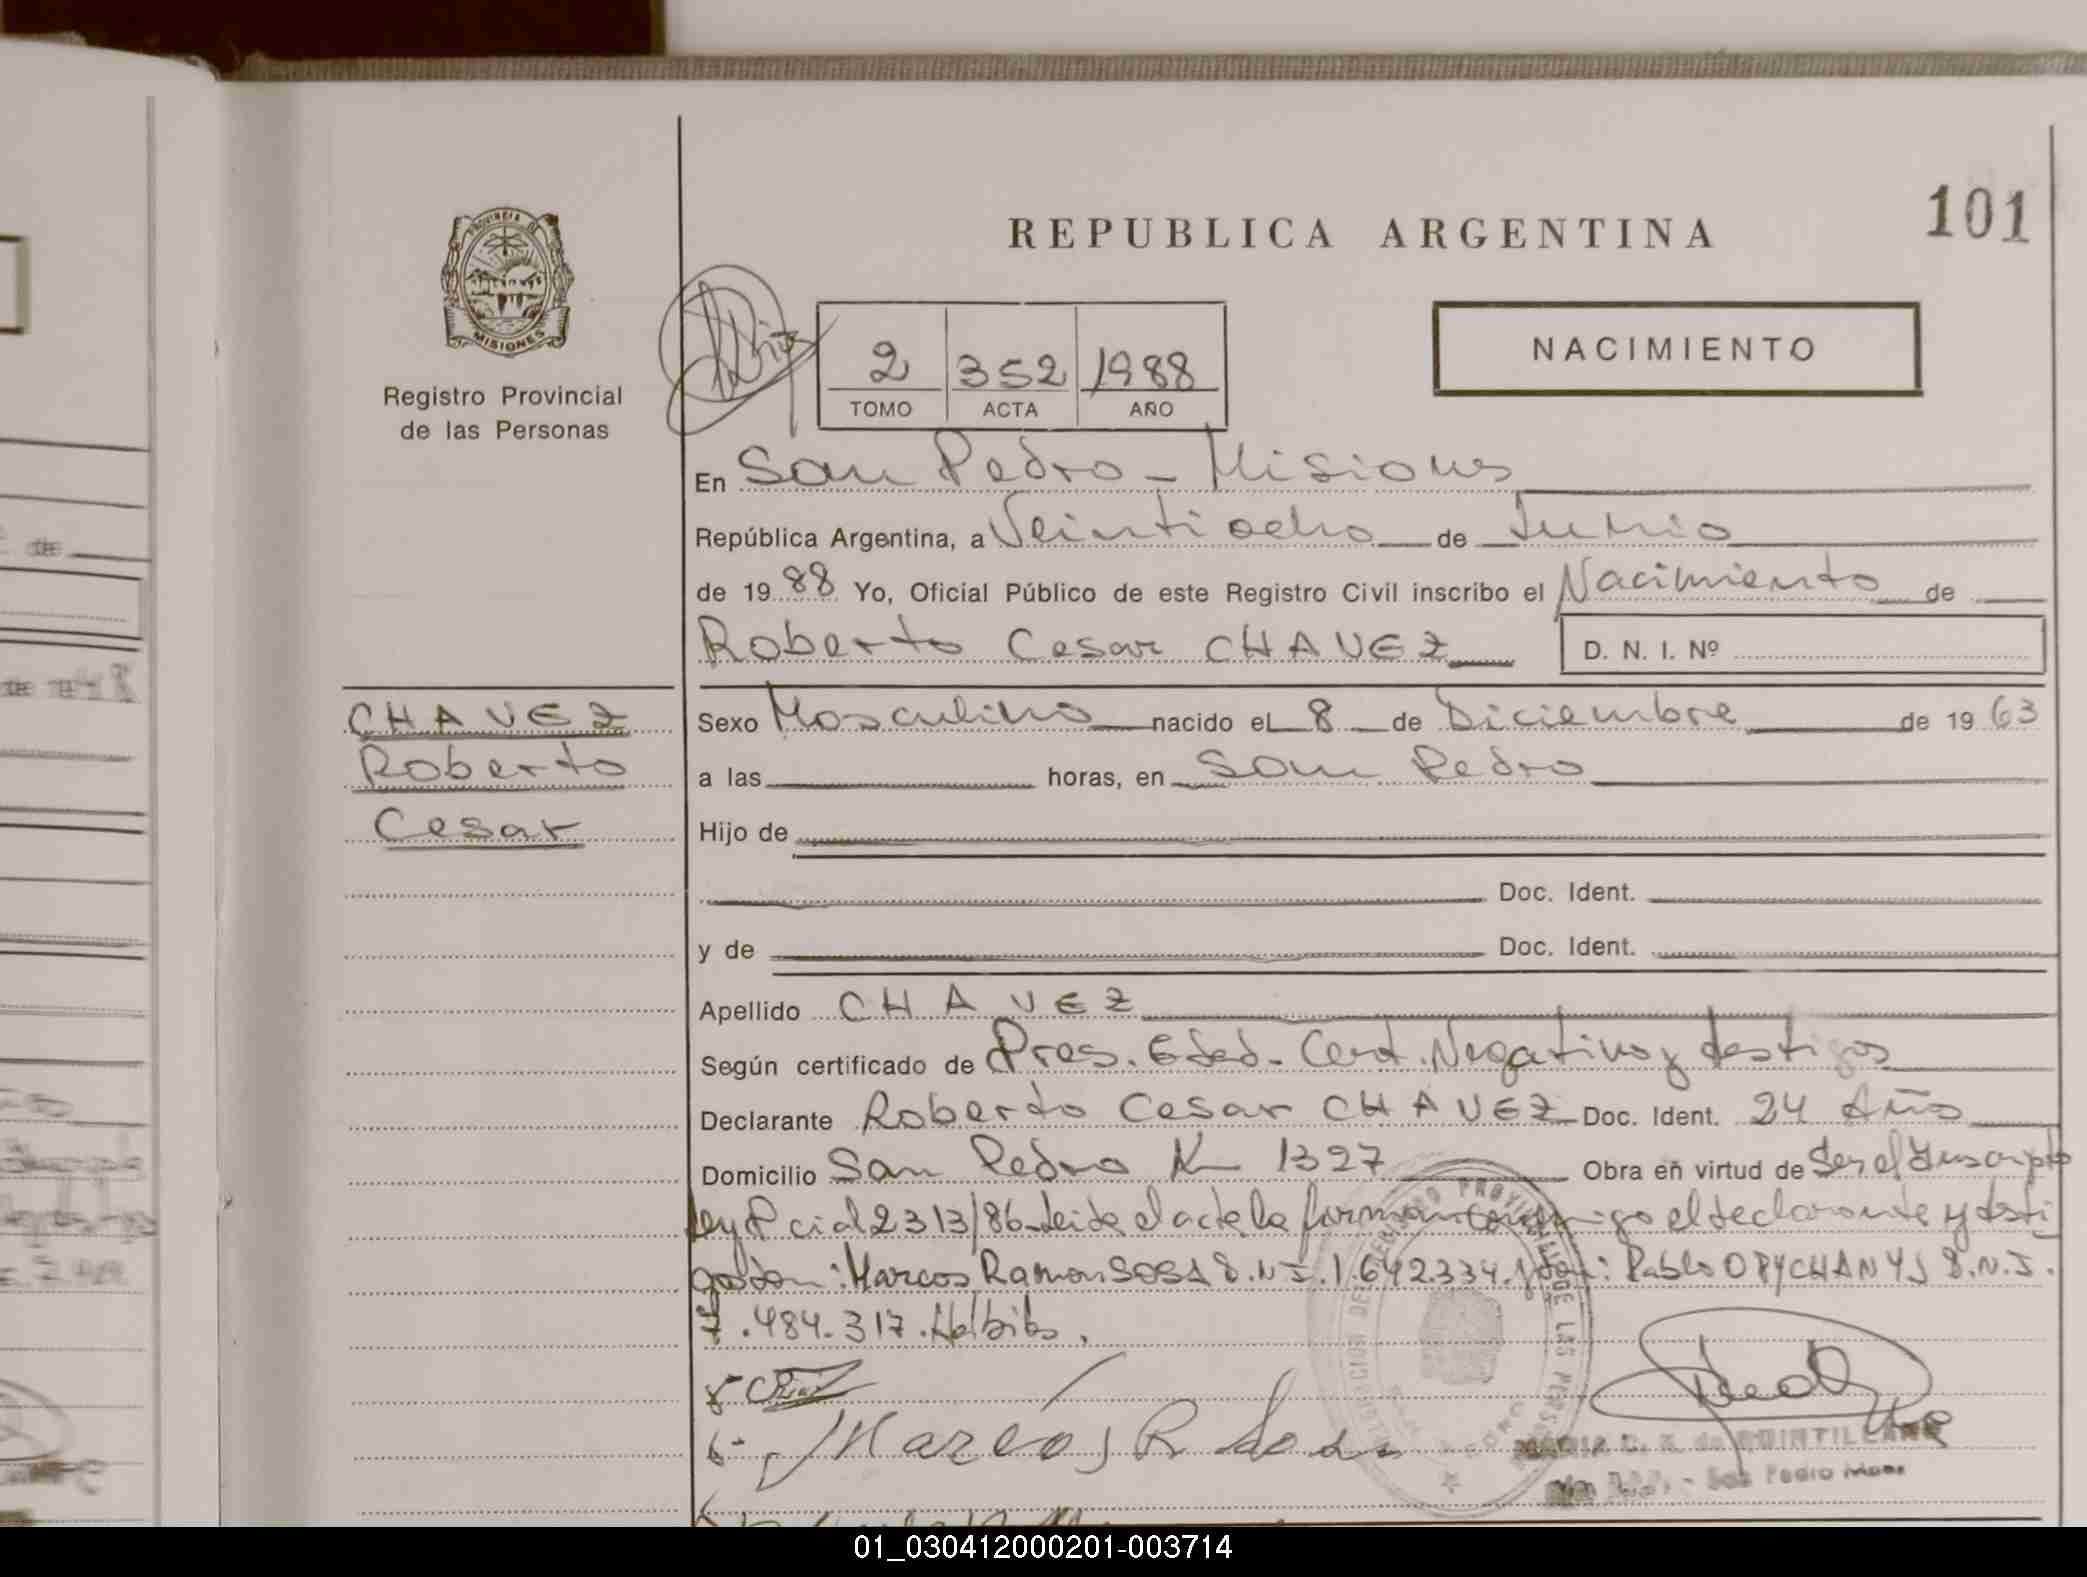 101
REPUBLICA ARGENTINA
PROVINCIA DE
MISIONES
Registro Provincial
de las Personas
2 352 1988
TOMO ACTA AÑO
NACIMIENTO
En San Pedro - Misiones
República Argentina, a Veintiocho de Junio
de 1988 Yo, Oficial Público de este Registro Civil inscribo el Nacimiento de
Roberto Cesar CHAVEZ D. N. I. Nº
CHAVEZ
Roberto
Cesar
Sexo Masculino nacido el 8 de Diciembre de 1963
a las horas, en San Pedro
Hijo de
Doc. Ident.
y de Doc. Ident.
Apellido CHAVEZ
Según certificado de Pres. Edad. Cert. Negativo y testigos
Declarante Roberto Cesar CHAVEZ Doc. Ident. 24 Año
Domicilio San Pedro K 1327 Obra en virtud de Ser el Inscripto
Ley Pcial 2313/86 Leida el acta la firman conmigo el declarante y testi
gos Don: Marcos Ramon SOSA D.N.I. 1.642.334. y Don: Pablo OPYCHANYJ D.N.I.
7.484.317.
Marcos R Sosa
de QUINTILLAN
San Pedro Mnes
01_030412000201-003714